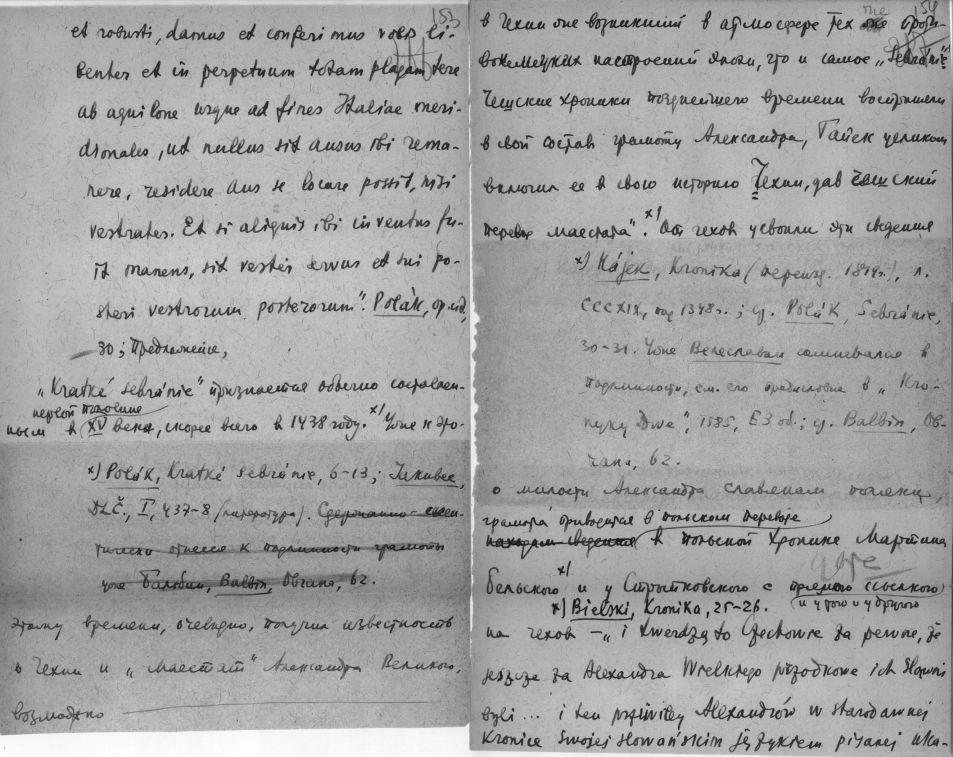 153
et robusti, damus et conferimus vobis li-
benter et in perpetuum totam plagam tere
ab aquilone usque ad fines Italiae meri-
dionales, ut nullus sit ausus ibi rema-
nere, residere aus se locare possit, nisi
vestrates. Et si aliquis ibi inventus fu-
it manens, sit vester servus et sui po-
steri vestrorum posterorum". Polák, op. cit,
30; Предложение,
„Kratké sebránie" признается обычно составлен-
первой половине
ным в XV века, скорее всего в 1438 году. x) Чопе к это-
x) Polák, Kratké sebránie, 6-13; Jakubec,
DLČ., I, 437-8 (литература). Сдержанно
отнесся к подлинности грамоты
Бальбин, Balbín, 62.
этому времени, очевидно, получил известность
в Чехии и „маестат" Александра Великого,
возможно
154
в Чехии возникший в атмосфере тех же проти-
вонемецких настроений эпохи, что и самое „Sebránie"
Чешские хроники позднейшего времени восприняли
в свой состав грамоту Александра, Гайек целиком
включил ее в свою историю Чехии, дав чешский
перевод маестата". x) От чехов усвоили эти сведения
x) Hájek, Kronika (переизд. 1819г.), л.
CCCXIX, под 1348 г.; ср. Polák, Sebránie,
30-31. Велеславин сомневался в
подлинности, см. его предисловие в „Kro-
niky Dwe", 1585, E3 об.; ср. Balbín,
62.
о милости Александра славянам поляки,
грамота приводится в польском переводе
находим сведения в польской хронике Мартина
Бельского x) и у Стрыйковского с прямою ссылкою
x) Bielski, Kronika, 25-26. и у того и у другого
на чехов – „i twerdzą to Czechowie za pewne, że
jeszcze za Alexandra Wielkiego przodkowie ich Słowani
byli... i ten przywiley Alexandrów w starodawnej
Kronice swojej słowańskim językiem pisanej uka-